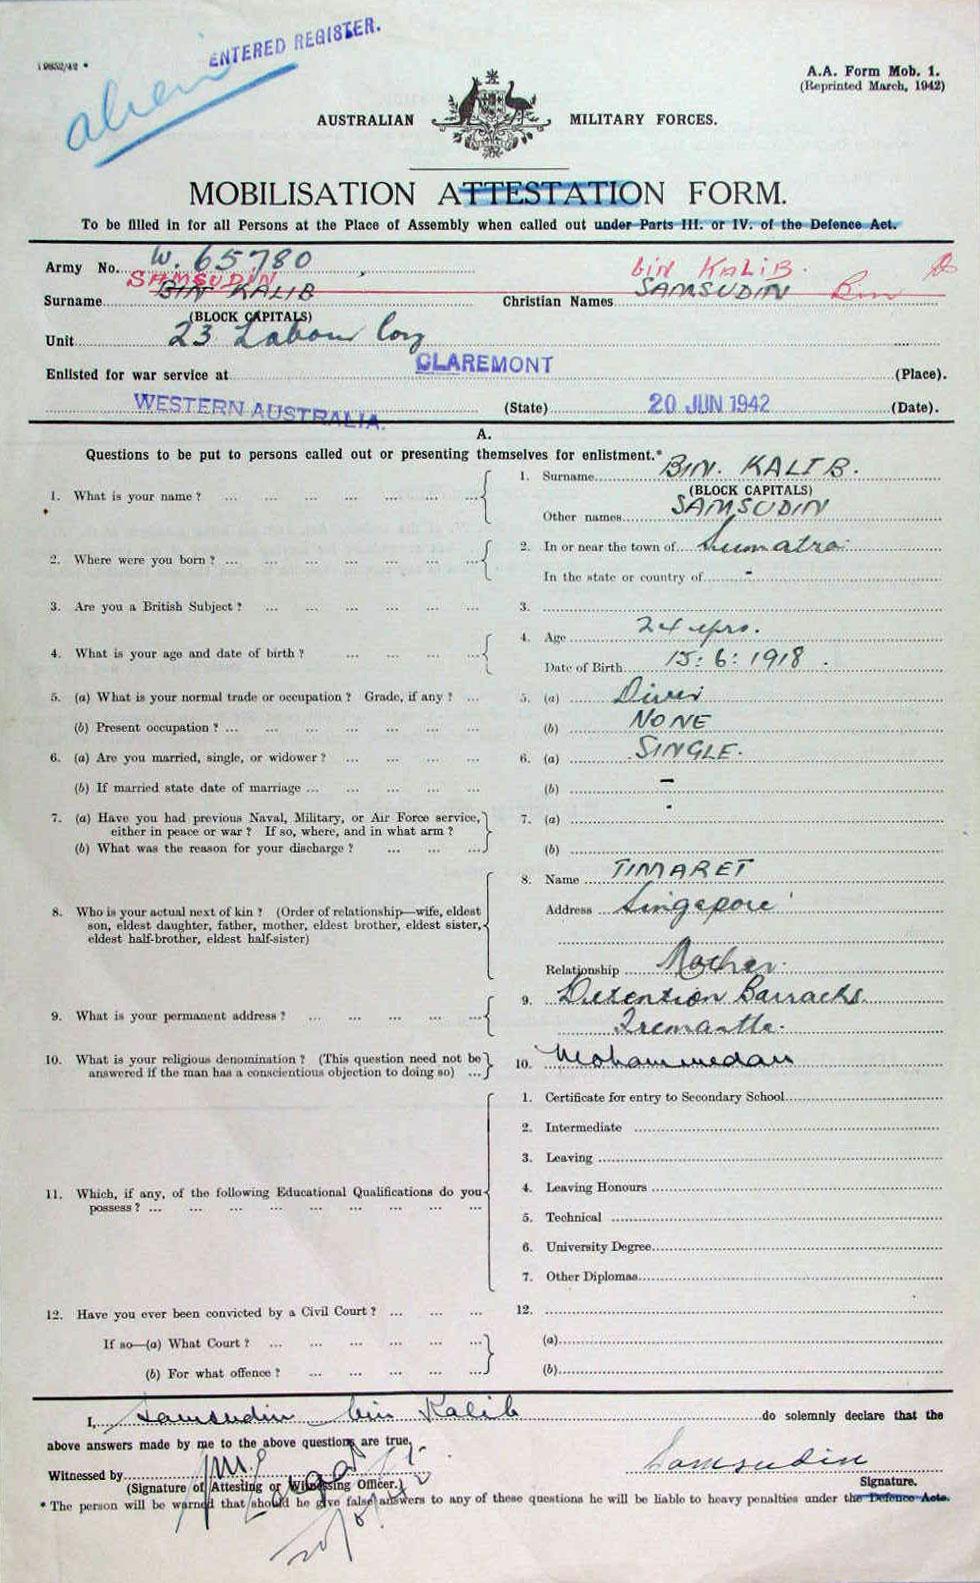 19652/42
ENTERED REGISTER.
alien
A.A. Form Mob. 1.
(Reprinted March, 1942)
AUSTRALIAN MILITARY FORCES.
MOBILISATION ATTESTATION FORM.
To be filled in for all Persons at the Place of Assembly when called out under Parts III. or IV. of the Defence Act.
Army No. W. 65780
SAMSUDIN bin KALIB.
Surname BIN KALIB Christian Names SAMSUDIN Bin
(BLOCK CAPITALS)
Unit 23 Labour Coy
Enlisted for war service at CLAREMONT (Place).
WESTERN AUSTRALIA. (State) 20 JUN 1942 (Date).
A.
Questions to be put to persons called out or presenting themselves for enlistment.*
1. What is your name? 1. Surname BIN. KALIB.
(BLOCK CAPITALS)
Other names SAMSUDIN
2. Where were you born? 2. In or near the town of Sumatra
In the state or country of -
3. Are you a British Subject? 3.
4. What is your age and date of birth? 4. Age 24 yrs.
Date of Birth 15:6:1918.
5. (a) What is your normal trade or occupation? Grade, if any? 5. (a) Diver
(b) Present occupation? (b) NONE
6. (a) Are you married, single, or widower? 6. (a) SINGLE.
(b) If married state date of marriage (b) -
7. (a) Have you had previous Naval, Military, or Air Force service, 7. (a)
either in peace or war? If so, where, and in what arm?
(b) What was the reason for your discharge? (b)
8. Name TIMARET
8. Who is your actual next of kin? (Order of relationship—wife, eldest Address Singapore
son, eldest daughter, father, mother, eldest brother, eldest sister,
eldest half-brother, eldest half-sister)
Relationship Mother.
9. What is your permanent address? 9. Detention Barracks.
Fremantle.
10. What is your religious denomination? (This question need not be 10. Mohammedan
answered if the man has a conscientious objection to doing so)
1. Certificate for entry to Secondary School
2. Intermediate
3. Leaving
11. Which, if any, of the following Educational Qualifications do you 4. Leaving Honours
possess?
5. Technical
6. University Degree
7. Other Diplomas
12. Have you ever been convicted by a Civil Court? 12.
If so—(a) What Court? (a)
(b) For what offence? (b)
I, Samsudin bin Kalib do solemnly declare that the
above answers made by me to the above questions are true.
Witnessed by Samsudin
(Signature of Attesting or Witnessing Officer.) Signature.
* The person will be warned that should he give false answers to any of these questions he will be liable to heavy penalties under the Defence Acts.